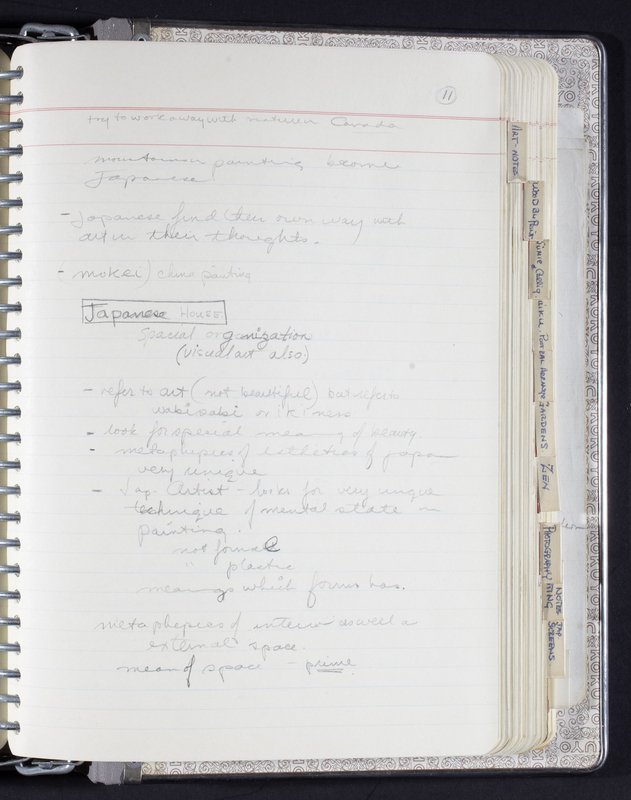 11
try to work away with nature in Canada
mountains in painting become
Japanese
- Japanese find their own way with
art in their thoughts.
- (mokei) china painting
Japanese HOUSE
Spacial organization
(visual art also)
- refer to art (not beautiful) but refers
wabi sabi or "ki" ness
- look for special meaning of beauty
- metaphepics of esthetics of Japan
very unique
- Jap. Artist - looks for very unique
technique of mental state in
painting.
not formal
" plastic
meanings which forms has.
metaphepics of interior as well a
external space.
mean of space - prime
ART-NOTES
GARDENS
ZEN
PHOTOGRAPHY
NOTES JAP.
SCREENS
KOKUYO